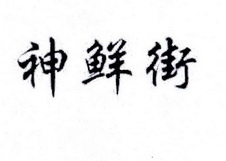 神鲜街